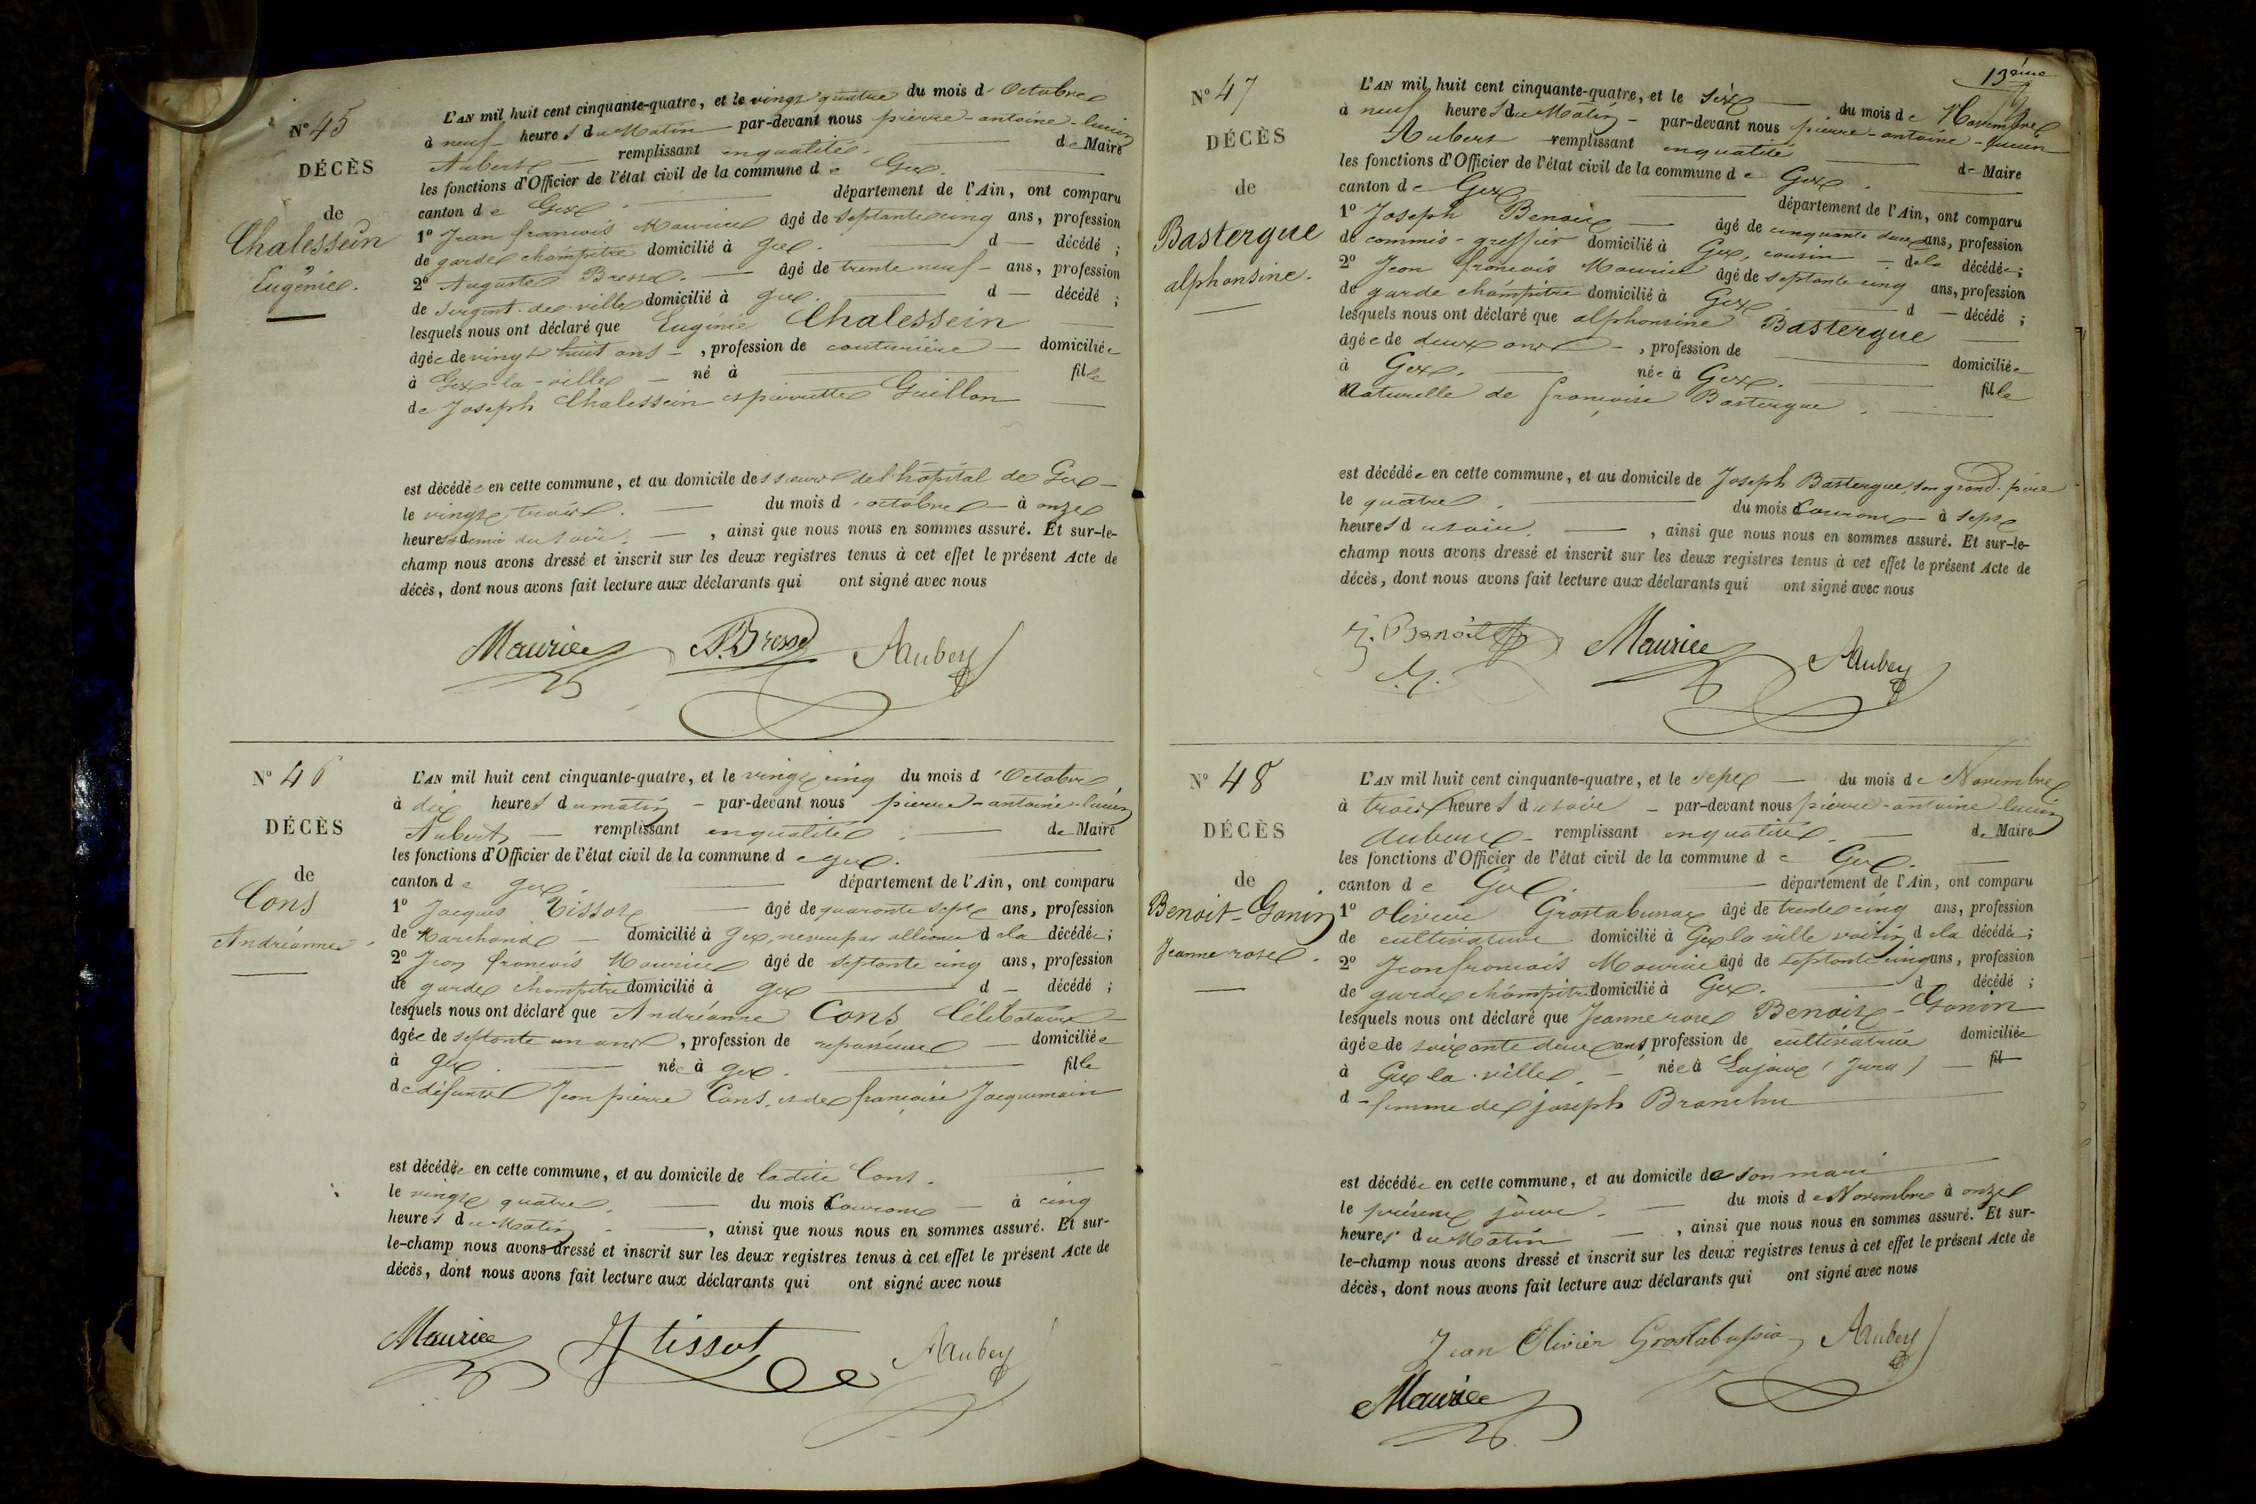 N° 45
DÉCÈS
de
Chalessein
Eugénie.
L'AN mil huit cent cinquante-quatre, et le vingt quatre du mois d'Octobre
à neuf heures du Matin par-devant nous pierre-antoine-lucien
Aubert remplissant en qualité de Maire
les fonctions d'Officier de l'état civil de la commune de Gex.
canton de Gex. département de l'Ain, ont comparu
1° Jean francois Maurice âgé de septante cinq ans, profession
de garde champêtre domicilié à Gex. d décédé ;
2° Auguste Bresse. âgé de trente neuf ans, profession
de Sergent de ville domicilié à Gex. d décédé ;
lesquels nous ont déclaré que Eugénie Chalessein
âgée de vingt huit ans, profession de couturière domiciliée
à Gex-la-ville né à fille
de Joseph Chalessein et pierrette Guillon
est décédée en cette commune, et au domicile des soeurs de l'hôpital de Gex
le vingt trois. du mois d'octobre à onze
heures & demie du soir., ainsi que nous nous en sommes assuré. Et sur-le-
champ nous avons dressé et inscrit sur les deux registres tenus à cet effet le présent Acte de
décès, dont nous avons fait lecture aux déclarants qui ont signé avec nous
Maurice A. Bresse Aubert
N° 46
DÉCÈS
de
Cons
Andréanne.
L'AN mil huit cent cinquante-quatre, et le vingt cinq du mois d'Octobre
à dix heures du matin par-devant nous pierre-antoine-lucien
Aubert remplissant en qualité de Maire
les fonctions d'Officier de l'état civil de la commune de gex.
canton de gex département de l'Ain, ont comparu
1° Jacques Tissot âgé de quarante sept ans, profession
de Marchand domicilié à Gex, neveu par alliance de la décédée ;
2° Jean francois Maurice âgé de septante cinq ans, profession
de garde champêtre domicilié à gex d décédé ;
lesquels nous ont déclaré que Andréanne Cons Célibataire
âgée de septante un ans, profession de repasseuse domiciliée
à gex. née à gex. fille
de défunts Jean pierre Cons, et de françoise Jacquemain
est décédée en cette commune, et au domicile de ladite Cons.
le vingt quatre. du mois Courant à cinq
heures du Matin, ainsi que nous nous en sommes assuré. Et sur-
le-champ nous avons dressé et inscrit sur les deux registres tenus à cet effet le présent Acte de
décès, dont nous avons fait lecture aux déclarants qui ont signé avec nous
Maurice J tissot Aubert
13ème
N° 47
DÉCÈS
de
Bastergue
alphonsine.
L'AN mil huit cent cinquante-quatre, et le Six du mois de Novembre
à neuf heures du Matin par-devant nous pierre-antoine-lucien
Aubert remplissant en qualité de Maire
les fonctions d'Officier de l'état civil de la commune de Gex.
canton de Gex département de l'Ain, ont comparu
1° Joseph Benoit âgé de cinquante deux ans, profession
de commis-greffier domicilié à Gex, cousin de la décédée ;
2° Jean francois Maurice âgé de septante cinq ans, profession
de garde champêtre domicilié à Gex d décédé ;
lesquels nous ont déclaré que alphonsine Bastergue
âgée de deux ans, profession de domiciliée
à Gex. née à Gex. fille
Naturelle de françoise Bastergue.
est décédée en cette commune, et au domicile de Joseph Bastergue, son grand-père
le quatre. du mois Courant à sept
heures du soir., ainsi que nous nous en sommes assuré. Et sur-le-
champ nous avons dressé et inscrit sur les deux registres tenus à cet effet le présent Acte de
décès, dont nous avons fait lecture aux déclarants qui ont signé avec nous
J. Benoit Maurice Aubert
N° 48
DÉCÈS
de
Benoit-Gonin
Jeanne rose.
L'AN mil huit cent cinquante-quatre, et le sept du mois de Novembre
à trois heures du soir par-devant nous pierre-antoine lucien
Aubert remplissant en qualité de Maire
les fonctions d'Officier de l'état civil de la commune de Gex.
canton de Gex. département de l'Ain, ont comparu
1° Olivier Grostabussiat âgé de trente cinq ans, profession
de cultivateur domicilié à Gex la ville voisin de la décédée ;
2° Jean francois Maurice âgé de septante cinq ans, profession
de garde champêtre domicilié à Gex. d décédé ;
lesquels nous ont déclaré que Jeanne rose Benoit-Gonin
âgée de soixante deux ans profession de cultivatrice domiciliée
à Gex la ville. née à Lajoux (Jura) fil
d femme de joseph Branchu
est décédée en cette commune, et au domicile de son mari
le présent jour. du mois de Novembre à onze
heures du Matin, ainsi que nous nous en sommes assuré. Et sur-
le-champ nous avons dressé et inscrit sur les deux registres tenus à cet effet le présent Acte de
décès, dont nous avons fait lecture aux déclarants qui ont signé avec nous
Jean Olivier Aubert
Maurice